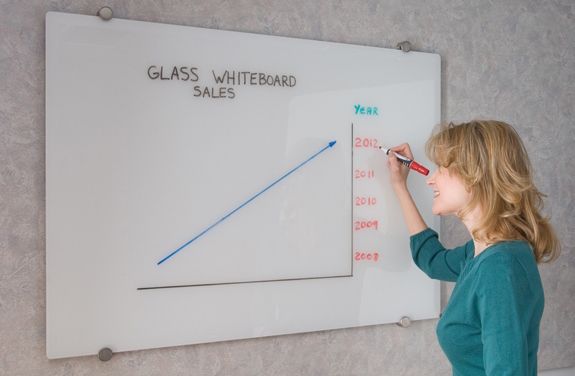 GLASS WHITEBOARD
SALES
YEAR
2012
2011
2010
2009
2008